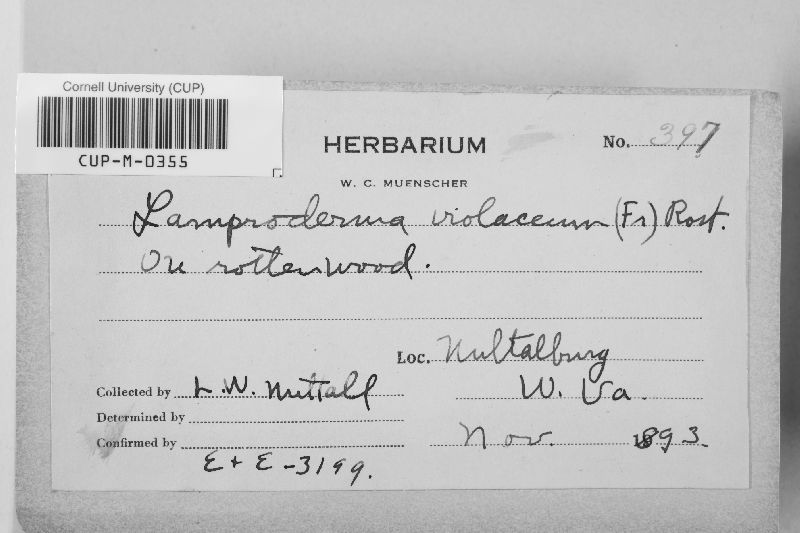 Cornell University (CUP)
CUP-M-0355
HERBARIUM
No. 397
W. C. MUENSCHER
Lamproderma violaceum (Fr) Rost.
On rotten wood.
Loc. Nuttalburg
W. Va.
Collected by L W. Nuttall
Determined by
Confirmed by
Nov. 1893.
E + E - 3199.